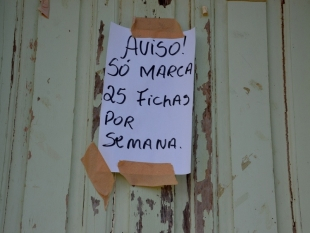 AVISO!
SÓ MARCA
25 FICHAS
POR
SEMANA.